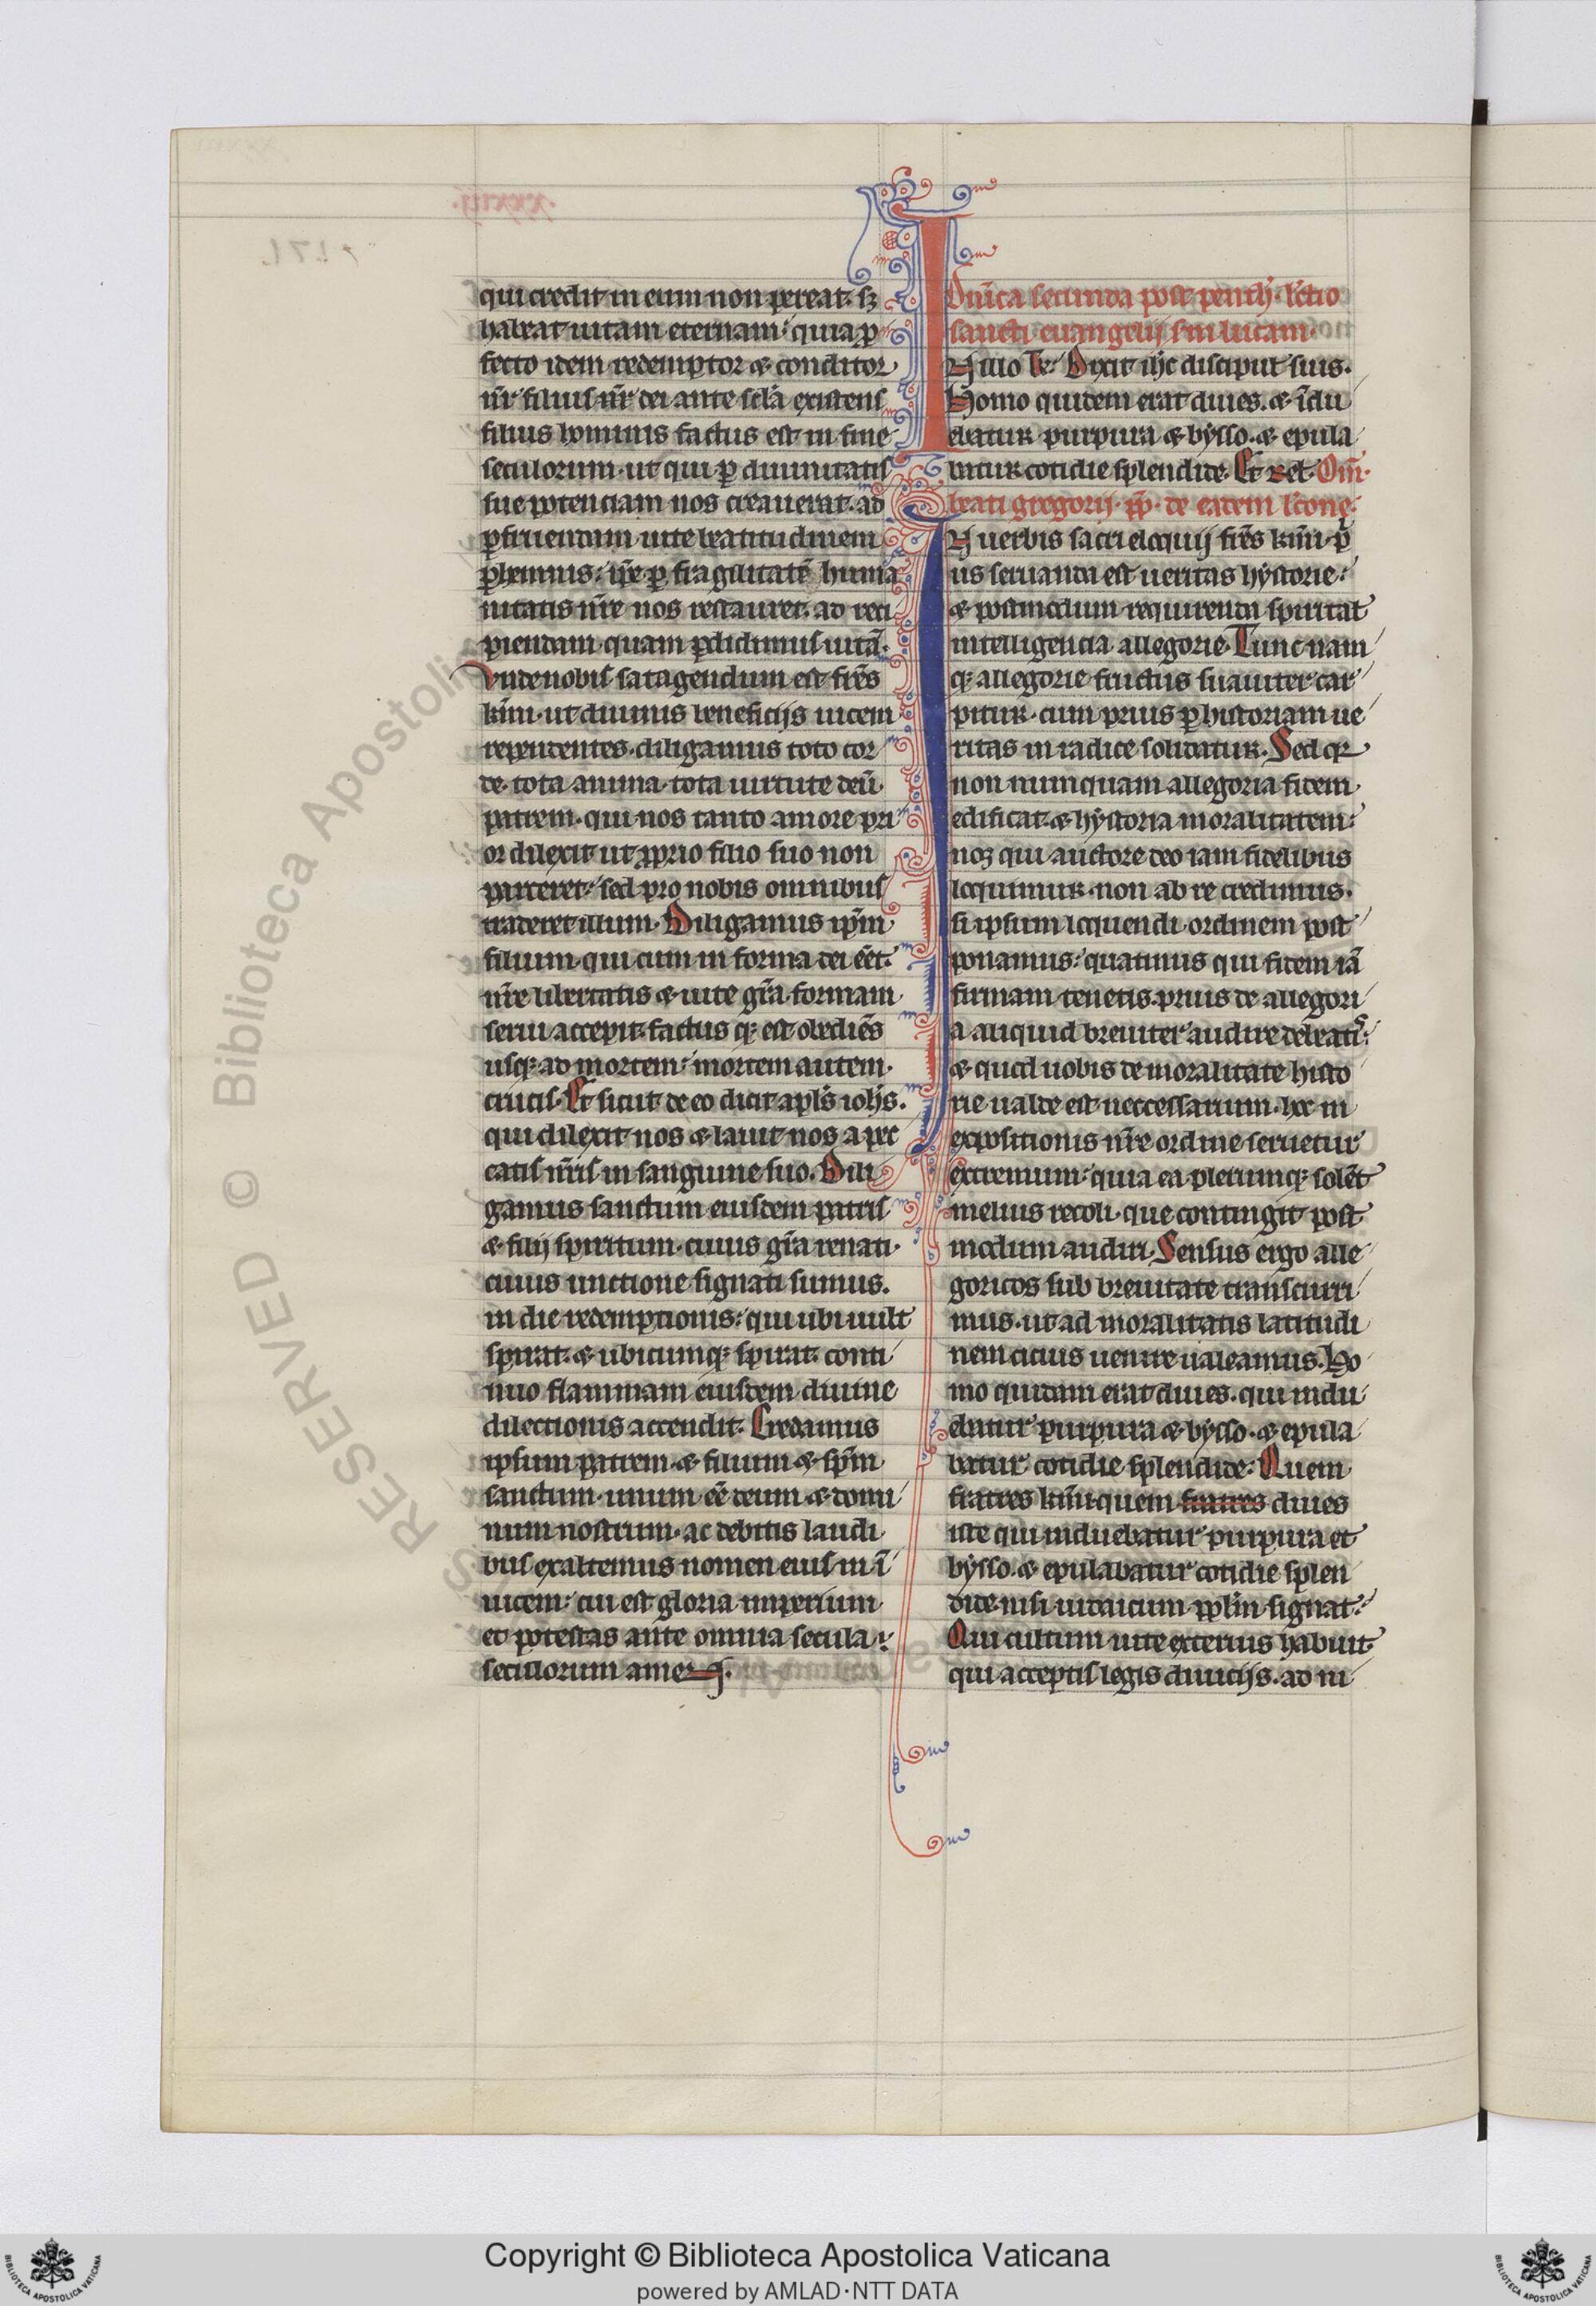 qui credit in eum non pereat. sꝫ
habeat uitam eternam: quia ꝓ
fecto idem redemptor & conditor
nr̄ filius nr̄ dei ante scl̄a existens
filius hominis factus est in fine
seculorum. ut qui ꝑ diuinitatis
sue potenciam nos creauerat. ad
ꝑfruendam uite beatitudinem
ꝑhennis: ip̄e ꝑ fragilitatē huma
nitatis nr̄e nos restauret. ad reci
piendam. quam ꝑdidimus uitā.
Unde nobis satagendum est fr̄es
kr̄mi. ut diuinis beneficijs uicem
rependentes. diligamus toto cor
de. tota anima. tota uirtute deū
patrem. qui nos tanto amore pri
or dilexit ut ꝓprio filio suo non
parceret: sed pro nobis omnibus
traderet illum. Diligamus ip̄m
filium. qui cum in forma dei eēt:
nr̄e libertatis & uite gr̄a. formam
serui accepit. factus qꝫ est obediēs
usqꝫ ad mortem: mortem autem.
crucis. Et sicut de eo dicit apl's ioh's.
qui dilexit nos & lauit nos a pec
catis nr̄is in sanguine suo. Dili
gamus sanctum eiusdem patris
& filij spiritum. cuius gr̄a renati.
cuius unctione signati sumus.
in die redemptionis: qui ubi uult
spirat. & ubicumqꝫ spirat. conti
nuo flammam eiusdem diuine
dilectionis accendit. Credamus
ipsum patrem. & filium & sp̄m
sanctum. unum eē deum & domi
num nostrum. ac debitis laudi
bus exaltemus nomen eius in ī
uicem: cui est gloria imperium
et potestas ante omnia secula ⁊
seculorum amen.
Dn̄ica secunda post penth'. l'ctio
sancti euangelij s'm lucam.
IN illo t'. Dixit ih'c discipul' suis.
Homo quidem erat diues. & īdu
ebatur purpura & bysso. & epula
batur cotidie splendide. Et rel'. Om̄.
beati gregorij. pp̄. de eadem l'cone.
IN uerbis sacri eloquij fr̄es kr̄mi. p
us seruanda est ueritas hystorie:
& postmodum requirenda spiritat
intelligencia allegorie. Tunc nam
qꝫ allegorie fructus suauiter car
pitur. cum prius ꝑ historiam ue
ritas in radice solidatur. Sed qr
non numquam allegoria fidem
edificat. & hystoria moralitatem:
nos qui auctore deo iam fidelibus
loquimur. non ab re credimus.
si ipsum loquendi ordinem post
ponamus: quatinus qui fidem iā
firmam tenetis. prius de allegori
a aliquid breuiter audire debeatis:
& quod uobis de moralitate histo
rie ualde est neccessarium. hoc in
expositionis nr̄e ordine seruetur
extremum: quia ea plerumqꝫ solēt
melius recoli. que contingit post
modum audiri. Sensus ergo alle
goricos sub breuitate transcurri
mus. ut ad moralitatis latitudi
nem citius uenire ualeamus. Ho
mo quidam erat diues. qui indu
ebatur purpura & bysso. & epula
batur cotidie splendide. Quem
fratres kr̄mi. quem fratres diues
iste qui induebatur purpura et
bysso. & epulabatur cotidie splen
dide. nisi iudaicum pp̄lm signat?
Qui cultum uite exterius habuit
qui acceptis legis diuicijs. ad ni
Copyright © Biblioteca Apostolica Vaticana
powered by AMLAD·NTT DATA